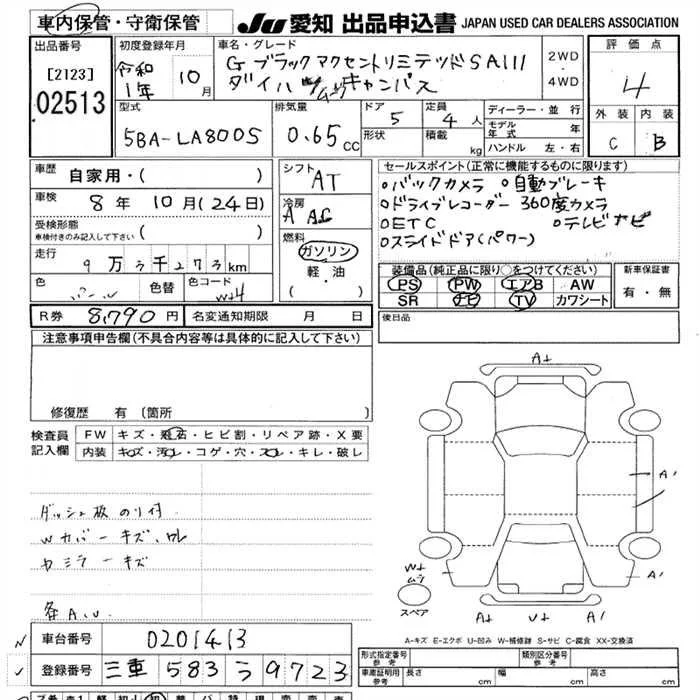 車内保管・守衛保管
JU 愛知 出品申込書 JAPAN USED CAR DEALERS ASSOCIATION
出品番号
[2123]
02513
初度登録年月
令和1年 10月
車名・グレード
Gブラックアクセントリミテッド SAIII
ダイハツ ムーヴキャンバス
2WD
・
4WD
評価点
4
外装 内装
C B
型式
5BA-LA800S
排気量
0.65 cc
ドア
5
形状
定員
4人
積載 kg
ディーラー・並行
モデル年式 年
ハンドル 左・右
車歴
自家用・( )
車検
8年10月(24日)
受検形態
車検付きのみ記入して下さい ( )
走行
9万3千273km
色 色替 色コード
W24
シフト
AT
冷房
A AC
燃料
ガソリン
軽・油
・( )
セールスポイント(正常に機能するものに限ります)
○バックカメラ ○自動ブレーキ
○ドライブレコーダー 360度カメラ
○ETC ○テレビナビ
○スライドドア(パワー)
装備品(純正品に限り○をつけてください)
PS PW エアB AW
SR ナビ TV カワシート
新車保証書
有・無
R券 8,790円
名変通知期限 月 日
後日品
注意事項申告欄(不具合内容等は具体的に記入して下さい)
修復歴 有(箇所 )
検査員記入欄
FW キズ・飛石・ヒビ割・リペア跡・X要
内装 キズ・汚れ・コゲ・穴・スレ・キレ・破レ
ダッシュ板のり付
Wカバーキズ、ワレ
カミラーキズ
各A、U
A+
A'
A'
A'
W+
ムラ
スペア
A+ U+ A+
A-キズ E-エクボ U-凹み W-補修跡 S-サビ C-腐食 XX-交換済
車台番号 0201413
登録番号 三重 583 う 9723
形式指定番号
参考
類別区分番号
参考
車庫証明用
参考
長さ cm
幅 cm
高さ cm